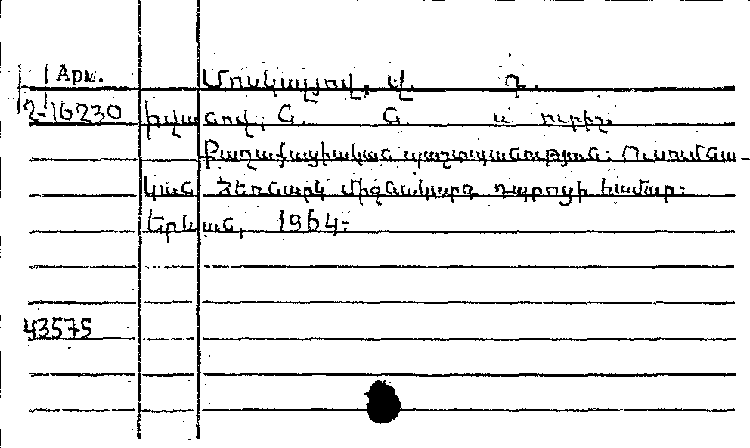 Арм. Մոսկալյով, Վ. Դ.
2-16230 Իվանով, Ն. Ն. և ուրիշ.
Քաղաքացիական պաշտպանություն: Ուսումնա-
կան ձեռնարկ միջնակարգ դպրոցի համար:
Երևան, 1964:
43575